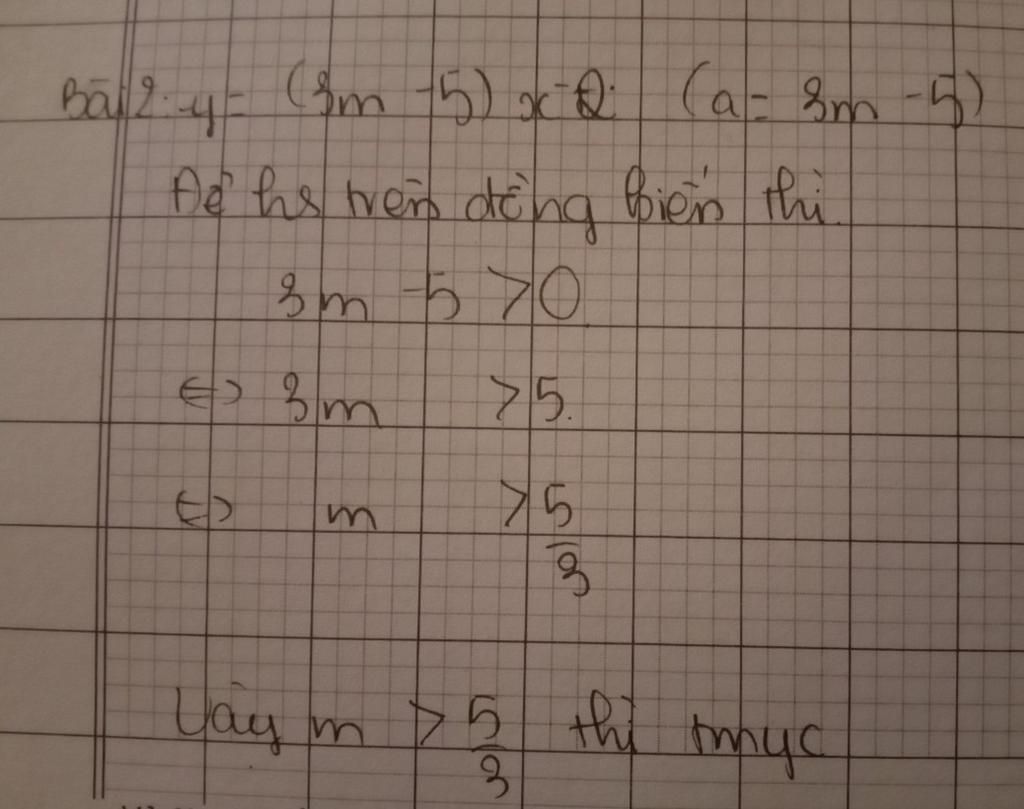 Bài 2: y = (3m - 5) x - 2 (a = 3m - 5)
Để hs trên đồng biến thì
3m - 5 > 0
<=> 3m > 5.
<=> m > 5/3
Vậy m > 5/3 thì tmyc